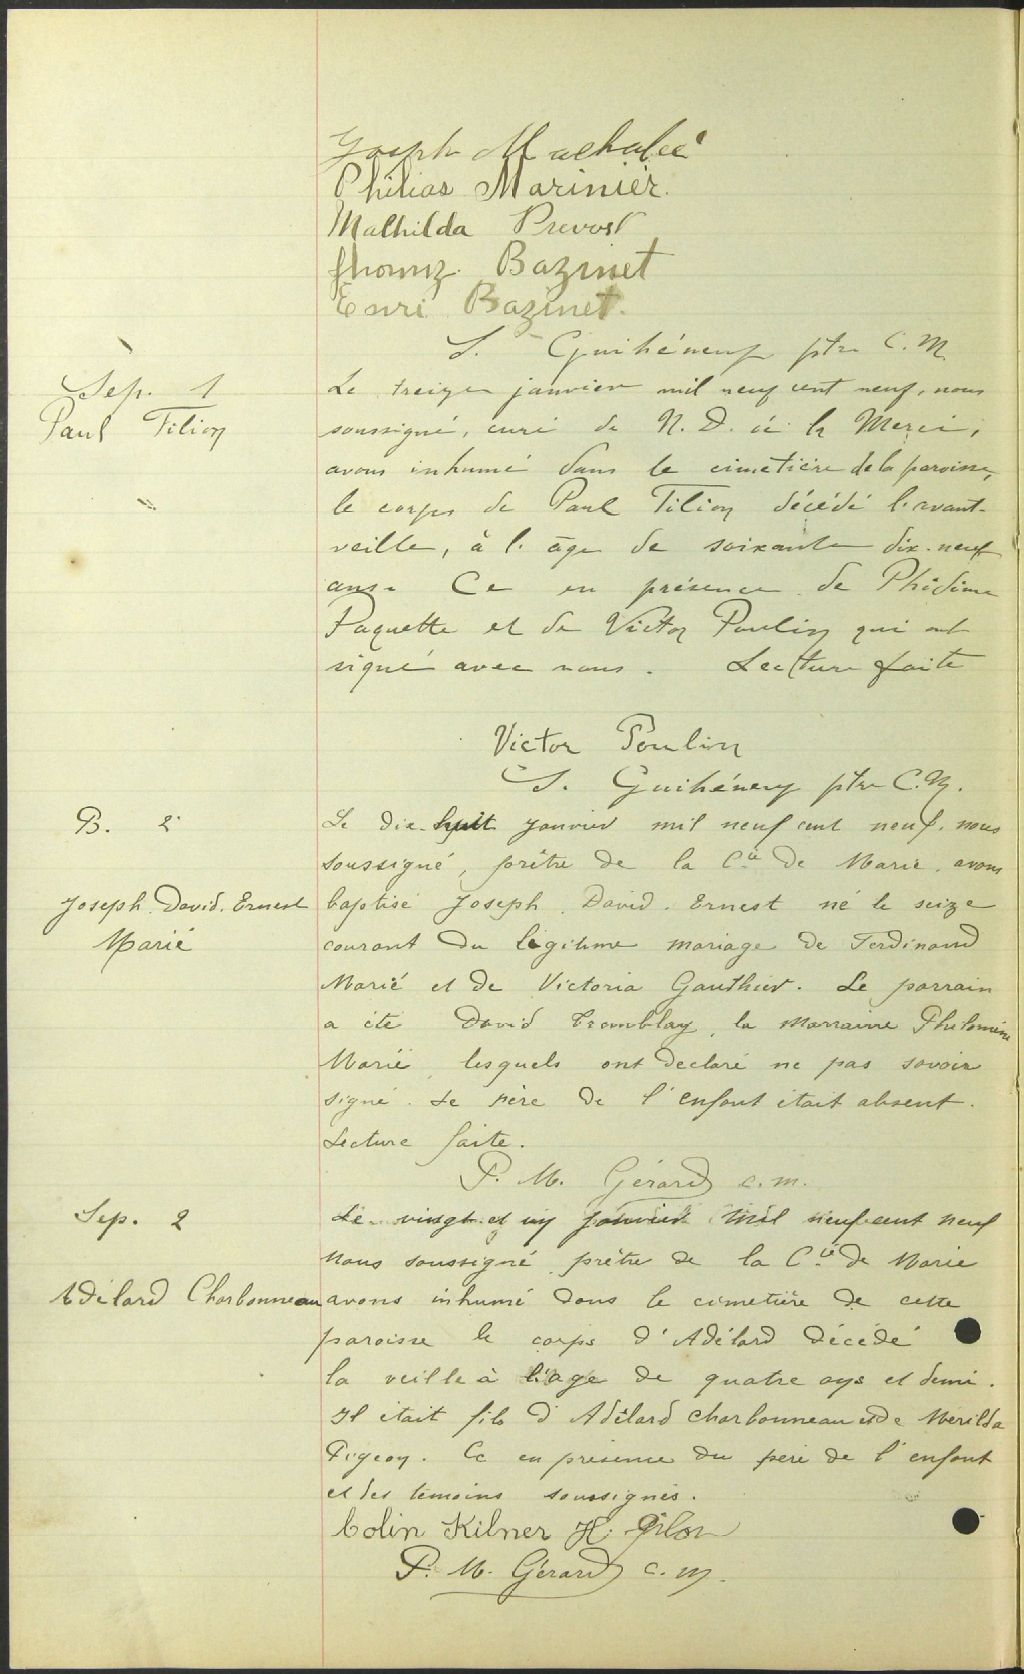 Joseph Machabée
Philias Marinier.
Mathilda Prevost
Bazinet
Enri Bazinet.
S. Guihéneuf ptre C. M.
Sep. 1
Paul Filion
Le treize janvier mil neuf cent neuf, nous
soussigné, curé de N. D. de la Merci,
avons inhumé dans le cimetière de la paroisse,
le corps de Paul Filion décédé l'avant-
veille, à l'âge de soixante dix-neuf
ans. Ce en présence de Phidime
Paquette et de Victor Poulin qui ont
signé avec nous. Lecture faite
Victor Poulin
S. Guihéneuf ptre C. M.
B. 2
Joseph. David. Ernest
Marié
Le dix-huit janvier mil neuf cent neuf, nous
soussigné, prêtre de la Cie de Marie, avons
baptisé Joseph. David. Ernest né le seize
courant du légitime mariage de Ferdinand
Marié et de Victoria Gauthier. Le parrain
a été David Tremblay, la marraine Philomène
Marié lesquels ont declaré ne pas savoir
signé. Le père de l'enfant était absent.
Lecture faite.
P. M. Gérard c. m.
Sep. 2
Adélard Charbonneau
Le vingt et un janvier mil neuf cent neuf
Nous soussigné prêtre de la Cie de Marie
avons inhumé dans le cimetière de cette
paroisse le corps d'Adélard décédé
la veille à l'age de quatre ans et demi.
Il était fils d'Adélard Charbonneau et de Merilda
Pigeon. Ce en présence du père de l'enfant
et des témoins soussignés.
Colin Kilner H.
P. M. Gérard c. m.